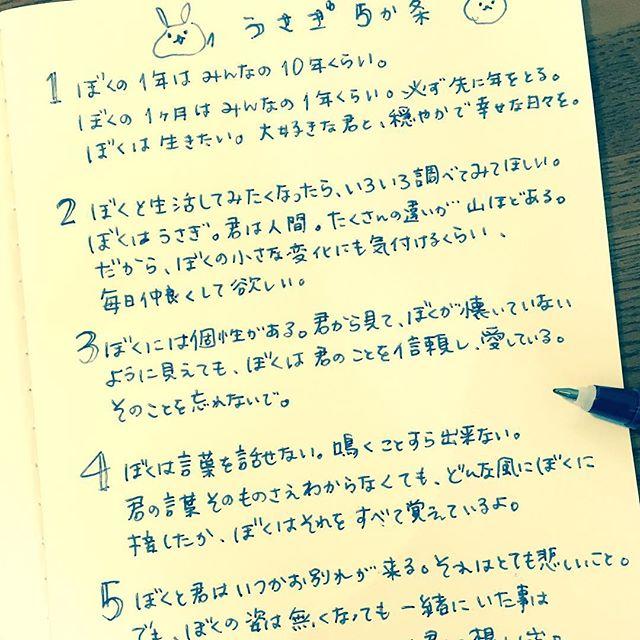 うさぎ5か条
1 ぼくの1年はみんなの10年くらい。
ぼくの1ヶ月はみんなの1年くらい。必ず先に年をとる。
ぼくは生きたい。大好きな君と、穏やかで幸せな日々を。
2 ぼくと生活してみたくなったら、いろいろ調べてみてほしい。
ぼくはうさぎ。君は人間。たくさんの違いが山ほどある。
だから、ぼくの小さな変化にも気付けるくらい、
毎日仲良くして欲しい。
3 ぼくには個性がある。君から見て、ぼくが懐いていない
ように見えても、ぼくは君のことを信頼し、愛している。
そのことを忘れないで。
4 ぼくは言葉を話せない。鳴くことすら出来ない。
君の言葉そのものさえわからなくても、どんな風にぼくに
接したか、ぼくはそれをすべて覚えているよ。
5 ぼくと君はいつかお別れが来る。それはとても悲しいこと。
でも、ぼくの姿は無くなっても一緒にいた事は